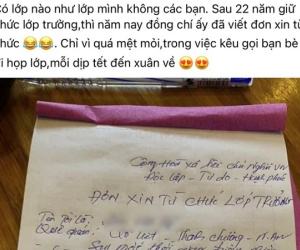 Có lớp nào như lớp mình không các bạn. Sau 22 năm giữ
chức lớp trưởng,thì năm nay đồng chí ấy đã viết đơn xin từ
chức 😂😂. Chỉ vì quá mệt mỏi,trong việc kêu gọi bạn bè
đi họp lớp,mỗi dịp tết đến xuân về 😍😍
Cộng Hoà xã hội chủ Nghĩa VN
Độc lập - Tự do - Hạnh phúc
ĐƠN XIN TỪ CHỨC LỚP TRƯỞNG
Tên Tôi là:
Quê quán: Thanh chương - N.An
Sau một thời gian